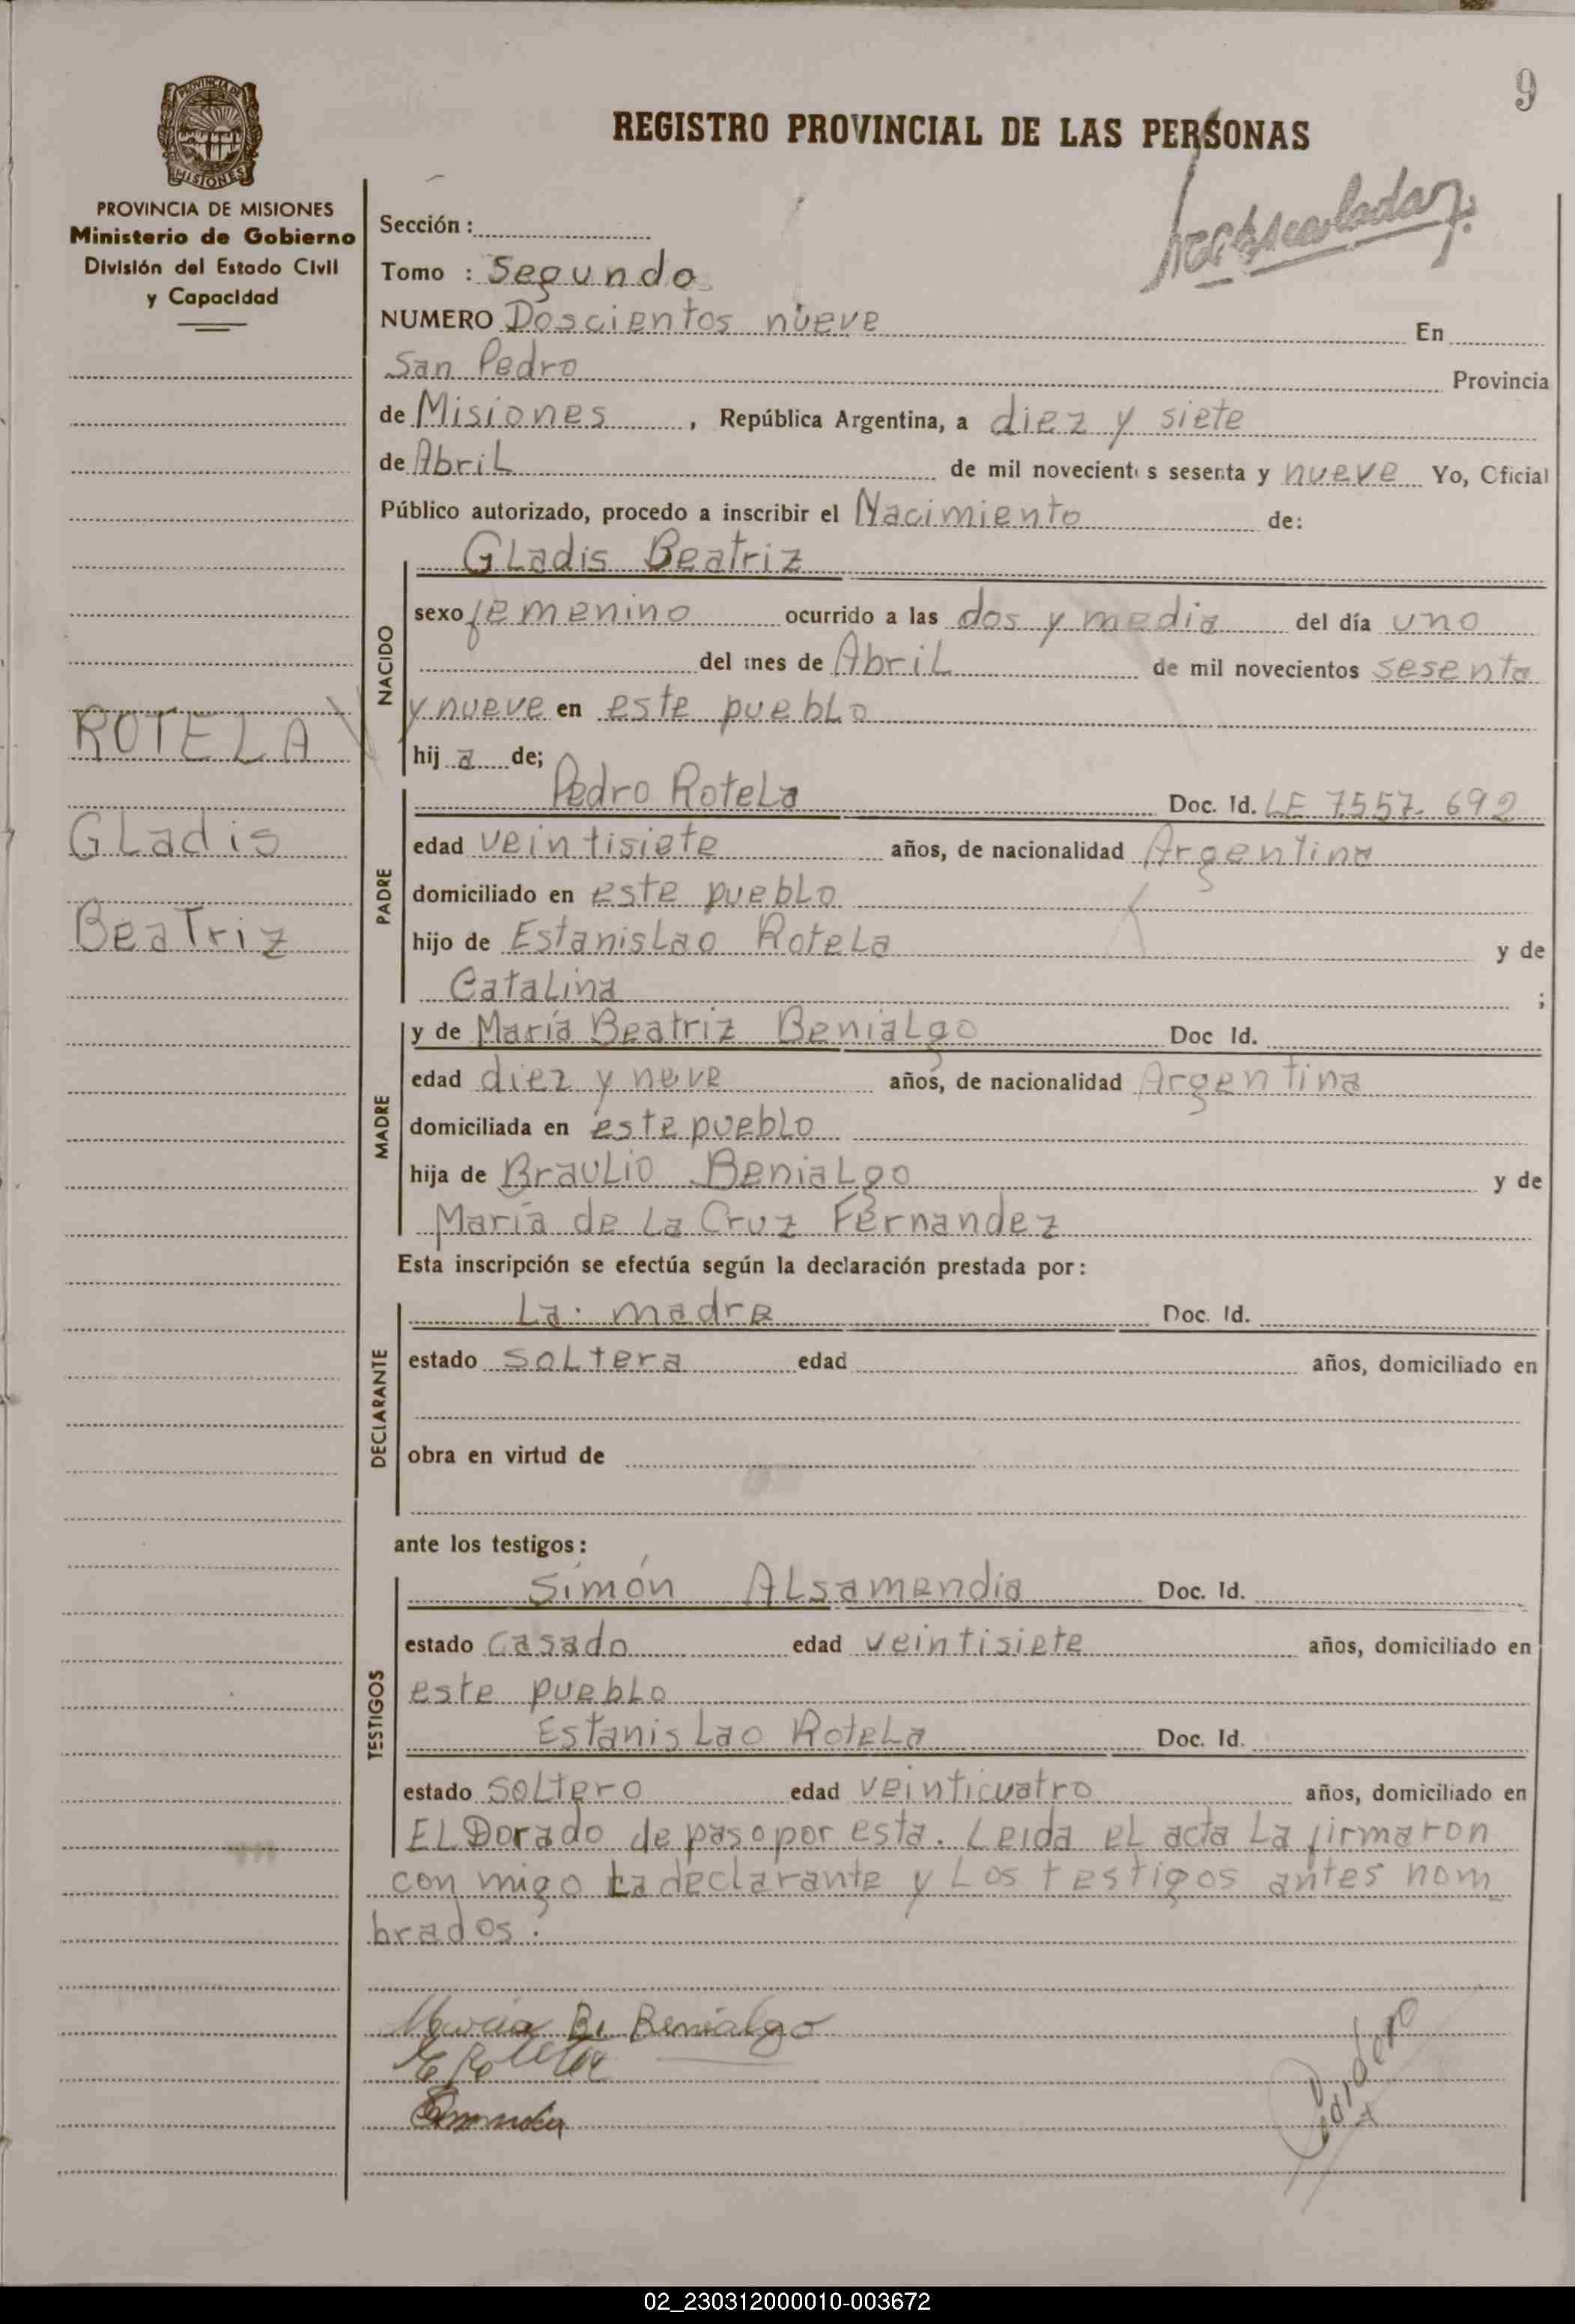 9
REGISTRO PROVINCIAL DE LAS PERSONAS
PROVINCIA DE MISIONES
PROVINCIA DE MISIONES
Ministerio de Gobierno
División del Estado Civil
y Capacidad
Sección :
Tomo : Segundo
NUMERO Doscientos nueve En
San Pedro Provincia
de Misiones , República Argentina, a diez y siete
de Abril de mil novecient s sesenta y nueve Yo, Oficial
Público autorizado, procedo a inscribir el Nacimiento de:
NACIDO
GLadis Beatriz
sexo femenino ocurrido a las dos y media del día uno
del mes de Abril de mil novecientos sesenta
y nueve en este puebLo
hij a de;
ROTELA
GLadis
BeaTriz
PADRE
Pedro RoteLa Doc. Id. LE 7557.692
edad veintisiete años, de nacionalidad Argentina
domiciliado en este puebLo
hijo de EstanisLao RoteLa y de
CataLina ;
MADRE
y de María Beatriz BeniaLgo Doc Id.
edad diez y neve años, de nacionalidad Argentina
domiciliada en este puebLo
hija de BrauLio BeniaLgo y de
María de La Cruz Fernandez
Esta inscripción se efectúa según la declaración prestada por:
DECLARANTE
La madre Doc. Id.
estado soLtera edad años, domiciliado en
obra en virtud de
ante los testigos:
TESTIGOS
Simón ALsamendia Doc. Id.
estado casado edad veintisiete años, domiciliado en
este puebLo
EstanisLao RoteLa Doc. Id.
estado soLtero edad veinticuatro años, domiciliado en
ELDorado de paso por esta. Leida eL acta La firmaron
con migo La declarante y Los testigos antes nom
brados.
Maria B. Benialgo
E Rotela
02_230312000010-003672